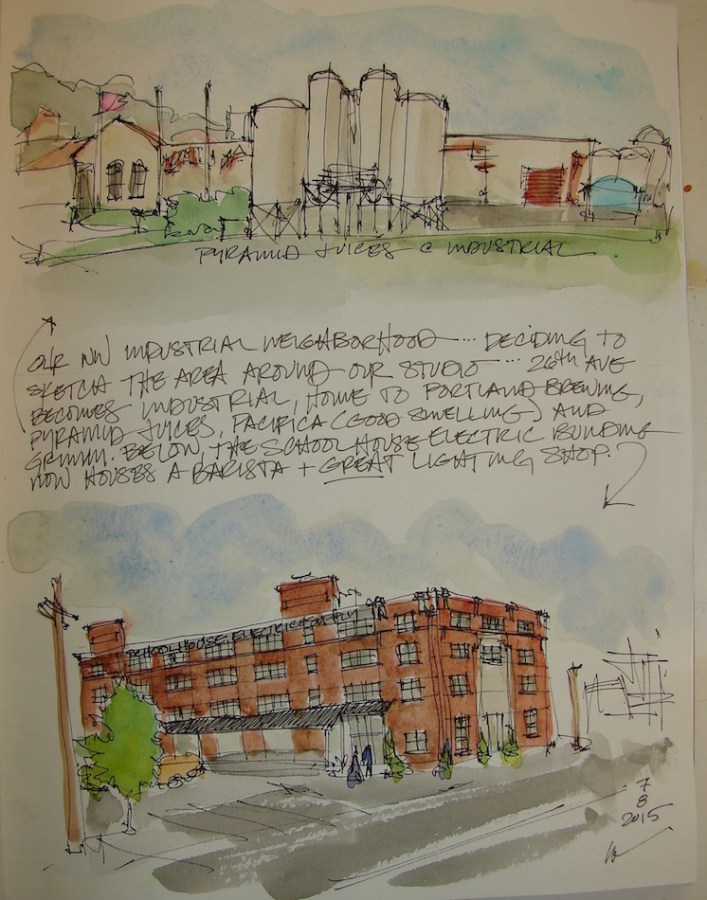 PYRAMID JUICES @ INDUSTRIAL
OUR NW INDUSTRIAL NEIGHBORHOOD ... DECIDING TO
SKETCH THE AREA AROUND OUR STUDIO ... 26th AVE
BECOMES INDUSTRIAL, HOME TO PORTLAND BREWING,
PYRAMID JUICES, PACIFICA (GOOD SMELLING) AND
GRIMM. BELOW, THE SCHOOL HOUSE ELECTRIC BUILDING
NOW HOUSES A BARISTA + GREAT LIGHTING SHOP.
SCHOOLHOUSE ELECTRIC SUPPLY
7
8
2015